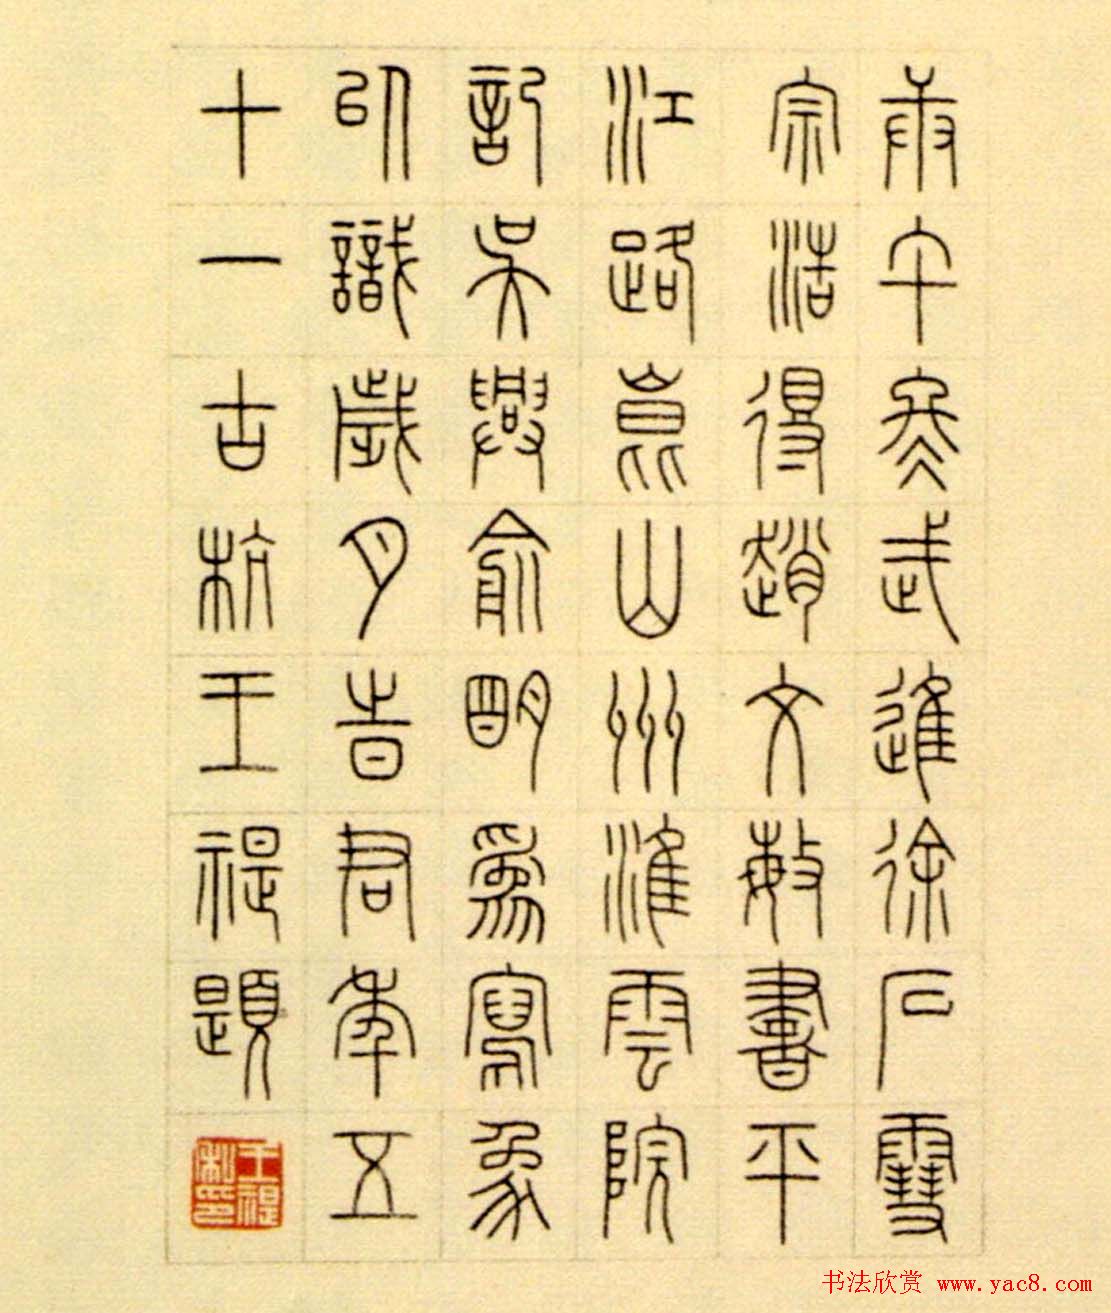 庚午冬武進徐石雪
宗浩得趙文敏書平
江路崑山州淮雲院
記吳興俞明爲寫象
以識歲月旹君年五
十一古杭王禔題
王禔私印
书法欣赏 www.yac8.com